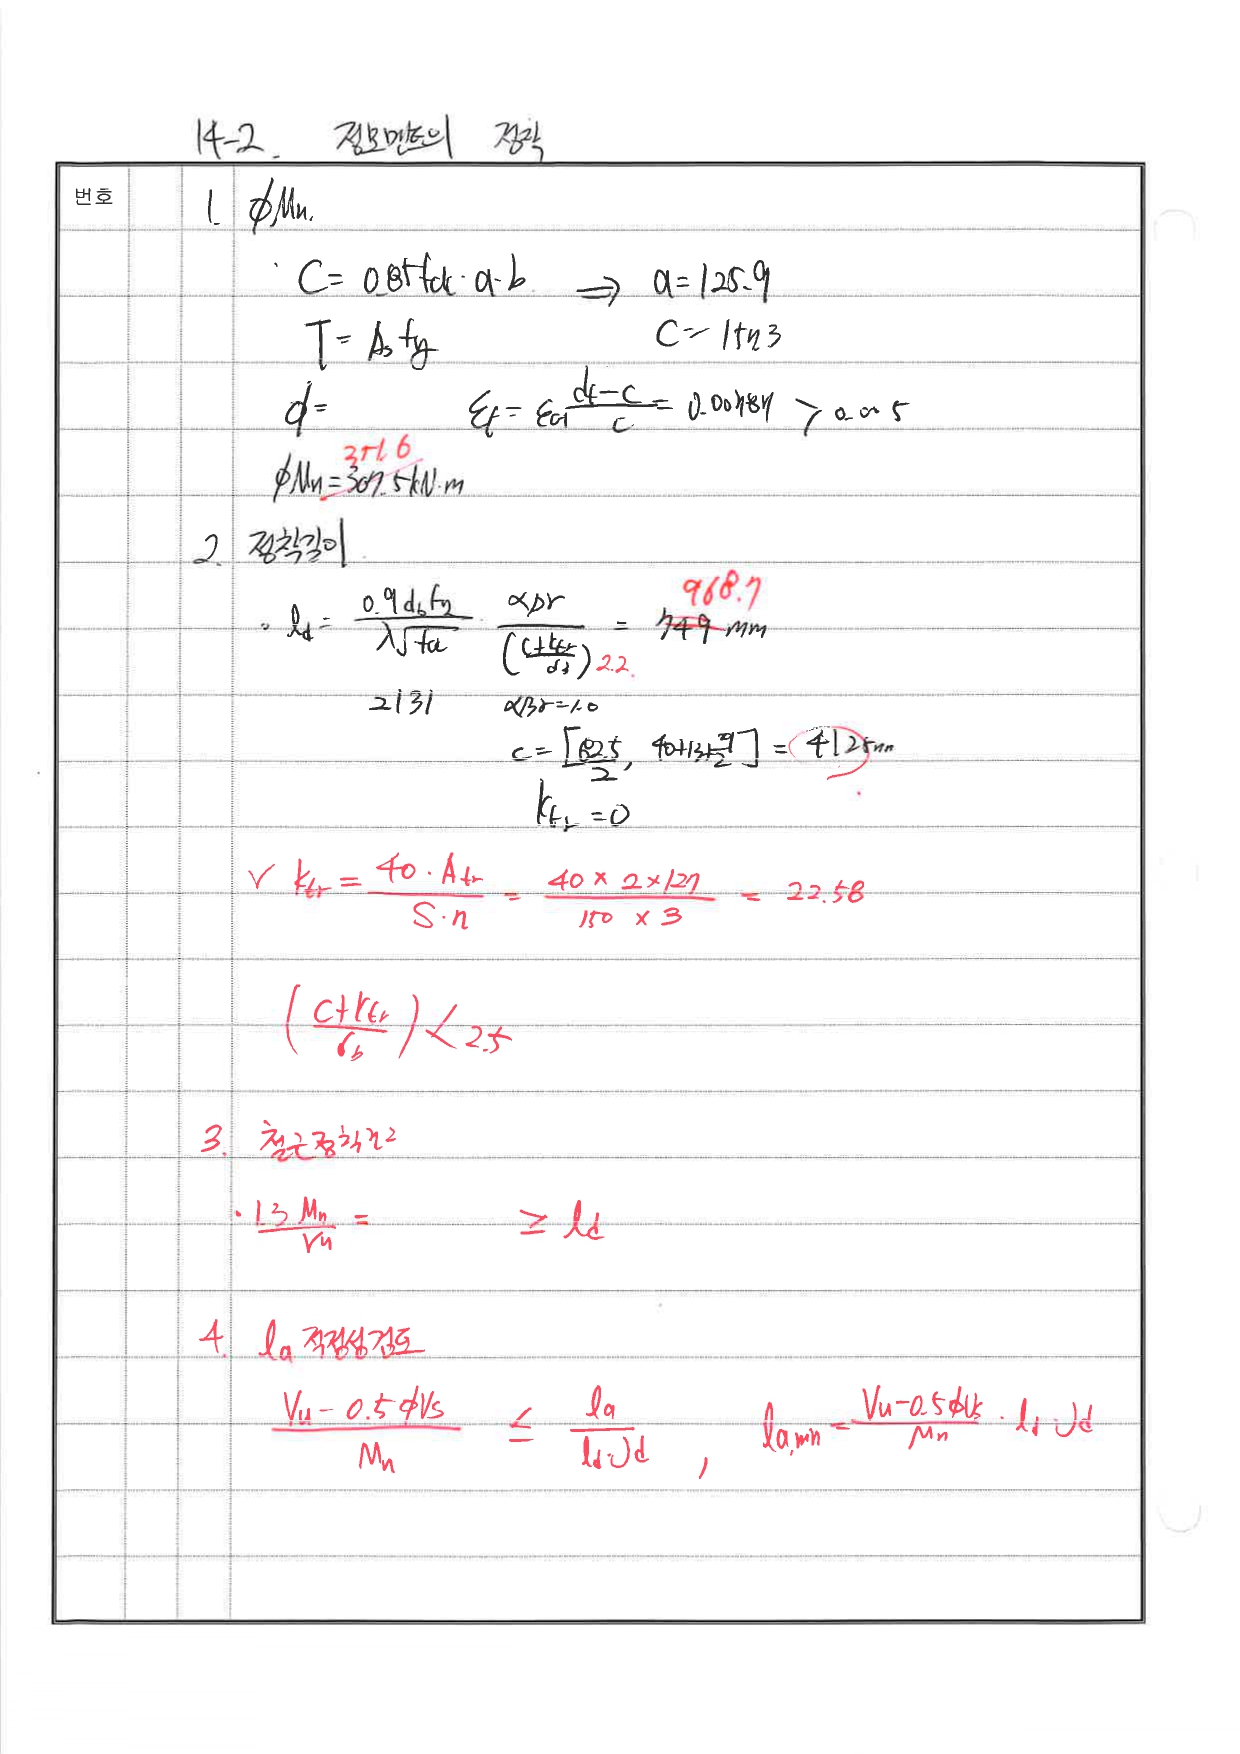 14-2. 정모멘트의 정착
번호
1. ϕMn.
· C = 0.85fck·a·b ⇒ a = 125.9
T = As fy
d = εt = εcu (dt-c)/c = 0.00787 > 0.005
351.6
ϕMn = 307.5kN·m
2. 정착길이
968.7
· ld = 0.9 db fy / λ√fck · αβγ / ((c+ktr)/db) 2.2 = 749 mm
2131 αβγ = 1.0
c = [82.5/2, 40+13+] = 41.25mm
ktr = 0
√ ktr = 40·Atr / S·n = 40 × 2 × 127 / 150 × 3 = 22.58
((c+ktr)/db) < 2.5
3. 철근정착검
· 1.3 Mn / Vu = ≥ ld
4. la 적정성검토
Vu - 0.5ϕVs / Mn ≤ la / ld·Jd , la,min = Vu-0.5ϕVs / Mn · ld·Jd